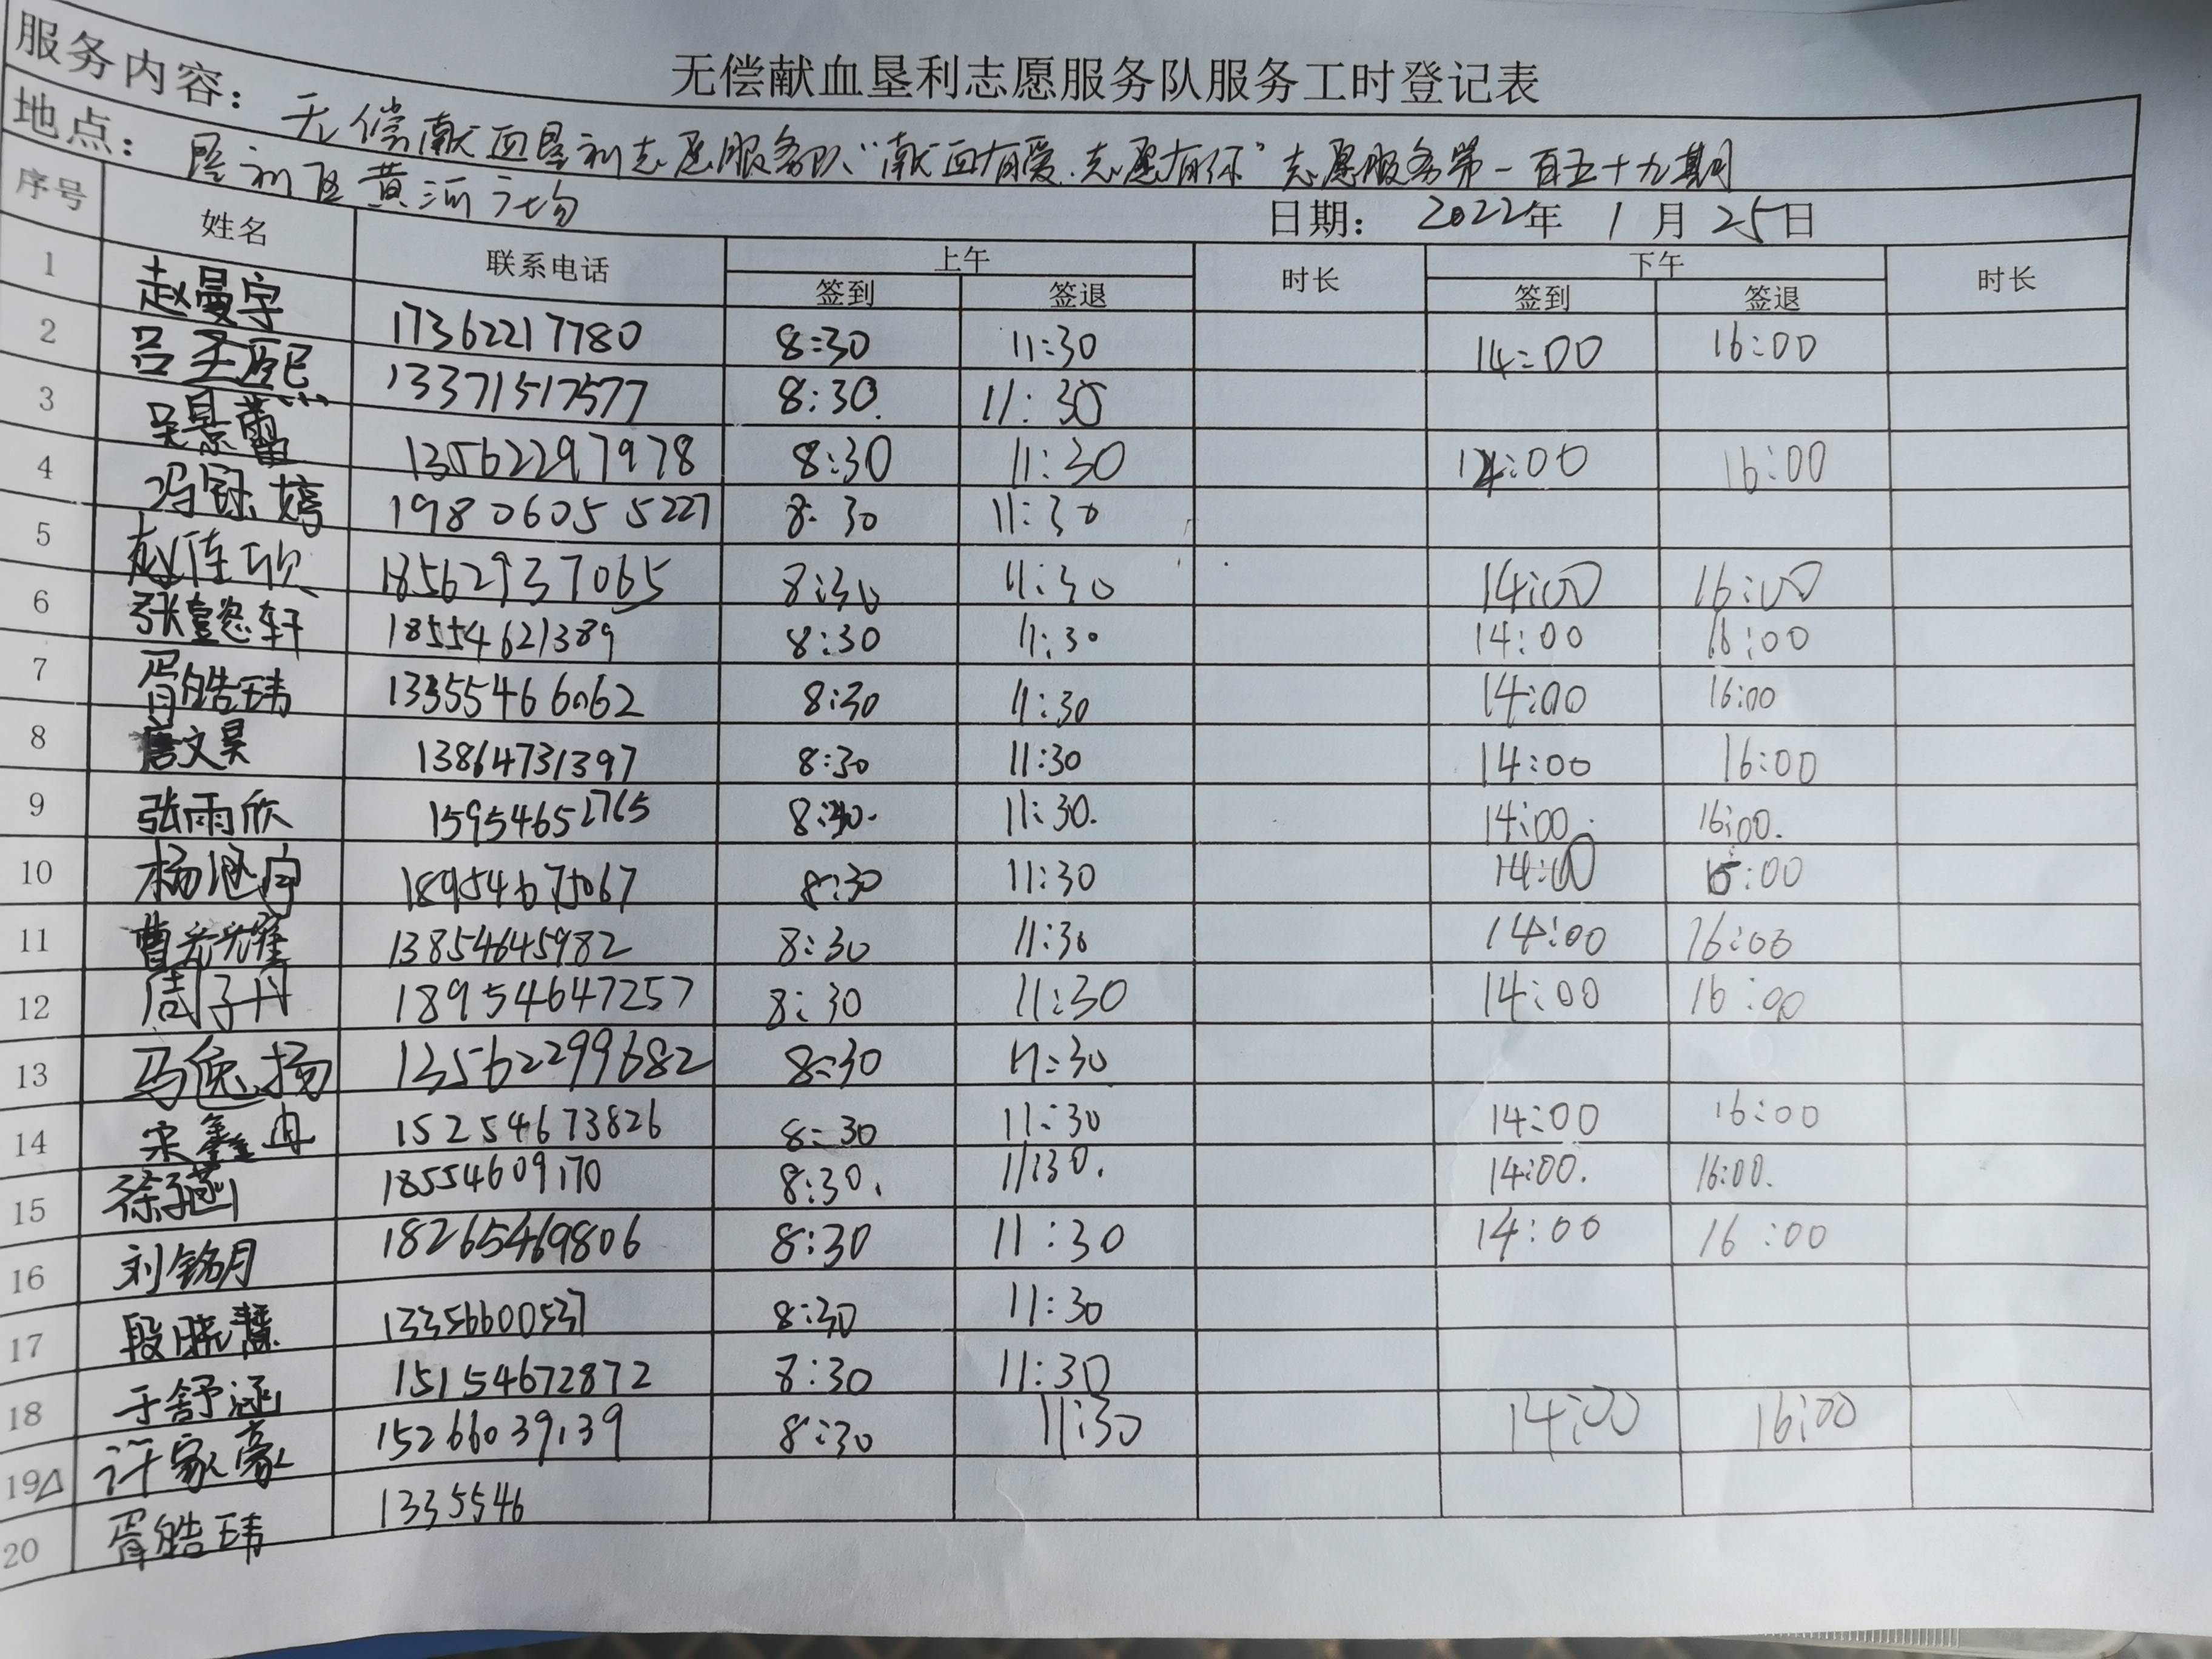 无偿献血垦利志愿服务队服务工时登记表
服务内容： 无偿献血垦利志愿服务队“献血有爱.志愿有你”志愿服务第一百五十九期
地点： 垦利区黄河广场 日期： 2022年 1 月 25日
序号 姓名 联系电话 上午 时长 下午 时长
签到 签退 签到 签退
1 赵曼宇 17362217780 8:30 11:30 14:00 16:00
2 吕圣熙 13371517577 8:30 11:30
3 吴景蕾 13562297978 8:30 11:30 14:00 16:00
4 冯钰婷 19806055227 8:30 11:30
5 赵佳欣 18562937065 8:30 11:30 14:00 16:00
6 张懿轩 18554621389 8:30 11:30 14:00 16:00
7 胥皓玮 13355466062 8:30 11:30 14:00 16:00
8 唐文昊 13864731397 8:30 11:30 14:00 16:00
9 张雨欣 15954652765 8:30. 11:30. 14:00. 16:00.
10 杨涵宇 18954675067 8:30 11:30 14:00 16:00
11 曹光耀 13854645982 8:30 11:30 14:00 16:00
12 周子丹 18954647257 8:30 11:30 14:00 16:00
13 马逸扬 13562299682 8:30 11:30
14 宋鑫冉 15254673826 8:30 11:30 14:00 16:00
15 徐子涵 18554609170 8:30. 11:30. 14:00. 16:00.
16 刘铭月 18265469806 8:30 11:30 14:00 16:00
17 段晓慧 13356600537 8:30 11:30
18 于舒涵 15154672872 8:30 11:30
19△ 许家豪 15266039139 8:30 11:30 14:00 16:00
20 胥皓玮 1335546